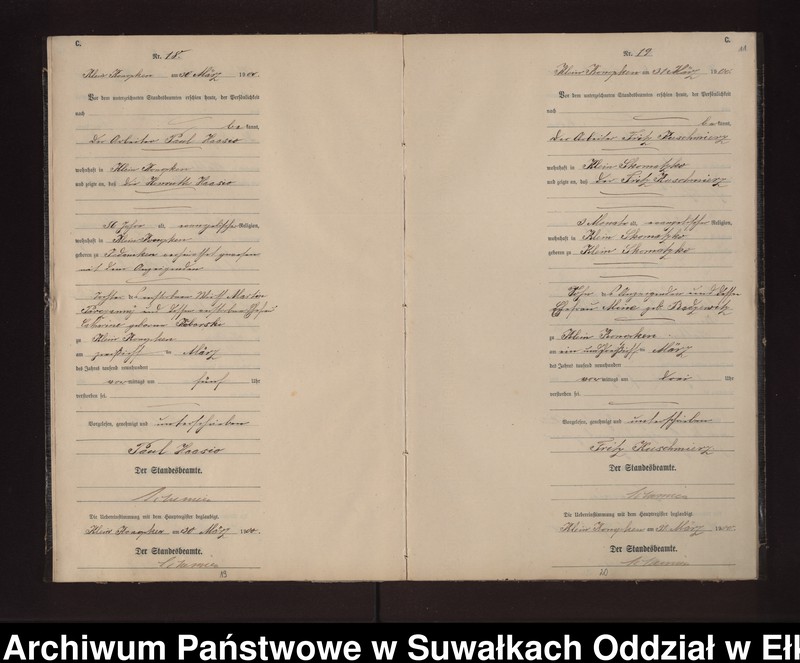 C.
Nr. 18
Klein Krongken am 30 März 1900.
Vor dem unterzeichneten Standesbeamten erschien heute, der Persönlichkeit
nach
be kannt,
Der Arbeiter Paul
wohnhaft in Klein Krongken
und zeigte an, daß Die
36 Jahre alt, evangelischer Religion,
wohnhaft in Klein Krongken
geboren zu verheirathet gewesen
mit dem Anzeigenden
Tochter des verstorbenen Wirth Martin
und dessen verstorbenen Ehefrau
geborene
zu Klein Krongken
am dreißigsten März
des Jahres tausend neunhundert
vor mittags um fünf Uhr
verstorben sei.
Vorgelesen, genehmigt und unterschrieben
Paul
Der Standesbeamte.
Die Uebereinstimmung mit dem Hauptregister beglaubigt.
Klein Krongken am 30 März 1900.
Der Standesbeamte.
19
C.
Nr. 19
Klein Krongken am 31 März 1900.
Vor dem unterzeichneten Standesbeamten erschien heute, der Persönlichkeit
nach
be kannt,
Der Arbeiter Fritz Kuschmierz
wohnhaft in Klein Skomatzko
und zeigte an, daß Der Fritz Kuschmierz
3 Monate alt, evangelischer Religion,
wohnhaft in Klein Skomatzko
geboren zu Klein Skomatzko
Sohn des Anzeigenden und dessen
Ehefrau geb.
zu Klein
am ein und dreißigsten März
des Jahres tausend neunhundert
vor mittags um drei Uhr
verstorben sei.
Vorgelesen, genehmigt und unterschrieben
Fritz Kuschmierz
Der Standesbeamte.
Die Uebereinstimmung mit dem Hauptregister beglaubigt.
Klein Krongken am 31 März 1900.
Der Standesbeamte.
20
Archiwum Państwowe w Suwałkach Oddział w Ełk